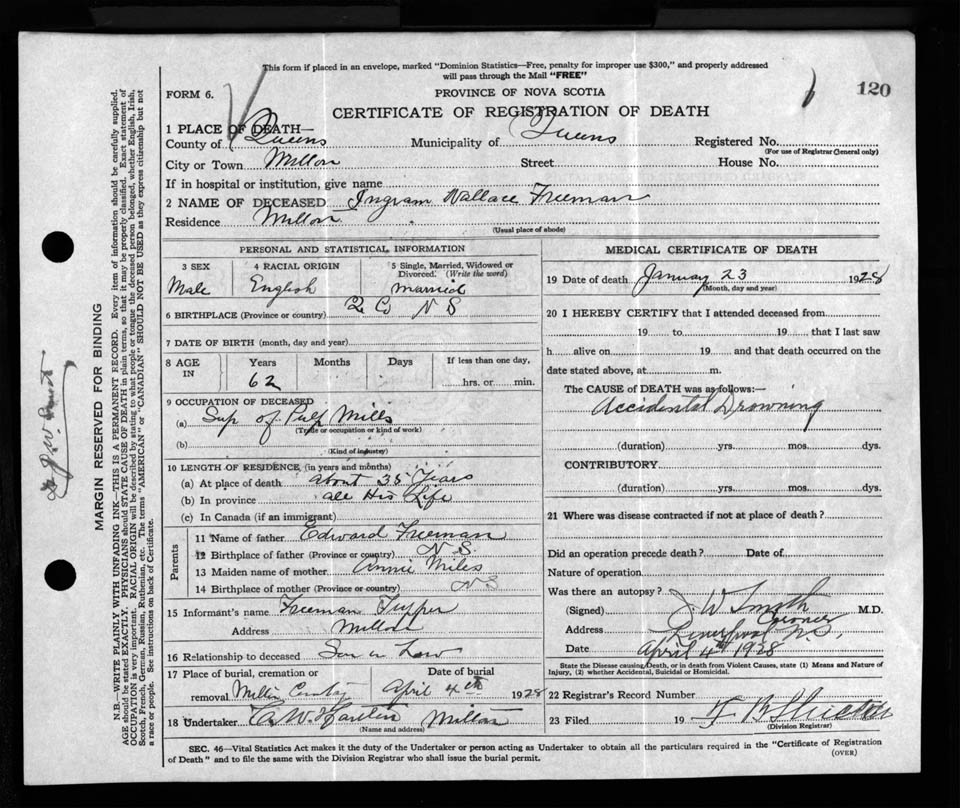 This form if placed in an envelope, marked "Dominion Statistics—Free, penalty for improper use $300," and properly addressed
will pass through the Mail "FREE"
FORM 6.
PROVINCE OF NOVA SCOTIA
120
CERTIFICATE OF REGISTRATION OF DEATH
1 PLACE OF DEATH—
County of Queens Municipality of Queens Registered No.
(For use of Registrar General only)
City or Town Milton Street House No.
If in hospital or institution, give name
2 NAME OF DECEASED Ingram Wallace Freeman
Residence Milton
(Usual place of abode)
PERSONAL AND STATISTICAL INFORMATION
3 SEX 4 RACIAL ORIGIN 5 Single, Married, Widowed or
Divorced. (Write the word)
Male English Married
6 BIRTHPLACE (Province or country) Q Co N S
7 DATE OF BIRTH (month, day and year)
8 AGE IN Years Months Days If less than one day,
62 hrs. or min.
9 OCCUPATION OF DECEASED
(a) Sup of Pulp Mills
(Trade or occupation or kind of work)
(b)
(Kind of industry)
10 LENGTH OF RESIDENCE (in years and months)
(a) At place of death about 35 Years
(b) In province all His Life
(c) In Canada (if an immigrant)
Parents
11 Name of father Edward Freeman
12 Birthplace of father (Province or country) N S
13 Maiden name of mother Annie Miles
14 Birthplace of mother (Province or country) N S
15 Informant's name Freeman Tupper
Address Milton
16 Relationship to deceased Son in Law
17 Place of burial, cremation or Date of burial
removal Milton April 4th 1928
18 Undertaker Milton
(Name and address)
MEDICAL CERTIFICATE OF DEATH
19 Date of death January 23 1928
(Month, day and year)
20 I HEREBY CERTIFY that I attended deceased from
19 to 19 that I last saw
h alive on 19 and that death occurred on the
date stated above, at m.
The CAUSE of DEATH was as follows:—
Accidental Drowning
(duration) yrs. mos. dys.
CONTRIBUTORY
(duration) yrs. mos. dys.
21 Where was disease contracted if not at place of death?
Did an operation precede death? Date of
Nature of operation
Was there an autopsy?
(Signed) J W Smith M.D.
Coroner
Address Liverpool N.S.
Date April 4th 1928
State the Disease causing Death, or in death from Violent Causes, state (1) Means and Nature of
Injury, (2) whether Accidental, Suicidal or Homicidal.
22 Registrar's Record Number
23 Filed 19
(Division Registrar)
SEC. 46—Vital Statistics Act makes it the duty of the Undertaker or person acting as Undertaker to obtain all the particulars required in the "Certificate of Registration
of Death" and to file the same with the Division Registrar who shall issue the burial permit.
(OVER)
MARGIN RESERVED FOR BINDING
N.B.—WRITE PLAINLY WITH UNFADING INK—THIS IS A PERMANENT RECORD. Every item of information should be carefully supplied.
AGE should be stated EXACTLY. PHYSICIANS should STATE CAUSE OF DEATH in plain terms, so that it may be properly classified. Exact statement of
OCCUPATION is very important. RACIAL ORIGIN will be described by stating to what people or tongue the deceased person belonged, whether English, Irish,
Scotch, French, German, Russian, Ruthenian, etc. The terms "AMERICAN" or "CANADIAN" SHOULD NOT BE USED as they express citizenship but not
a race or people. See instructions on back of Certificate.